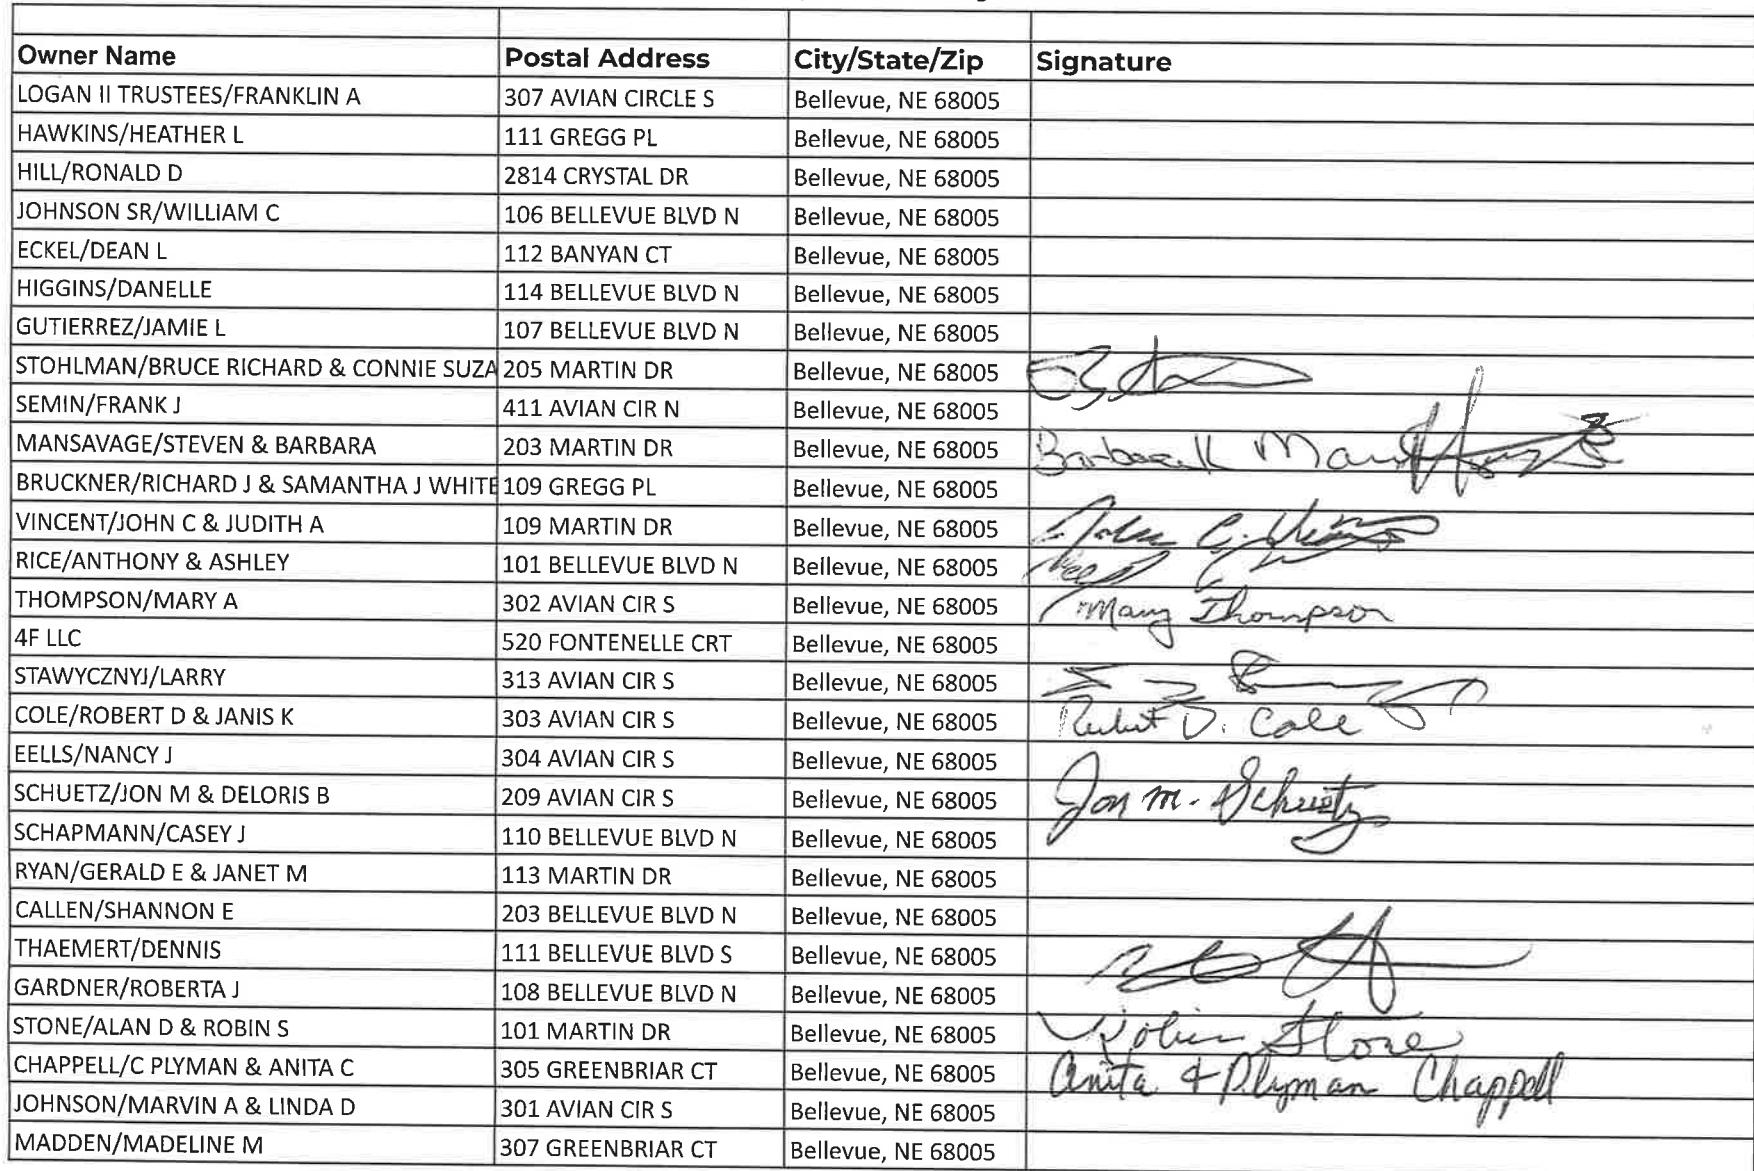 Owner Name Postal Address City/State/Zip Signature
LOGAN II TRUSTEES/FRANKLIN A 307 AVIAN CIRCLE S Bellevue, NE 68005
HAWKINS/HEATHER L 111 GREGG PL Bellevue, NE 68005
HILL/RONALD D 2814 CRYSTAL DR Bellevue, NE 68005
JOHNSON SR/WILLIAM C 106 BELLEVUE BLVD N Bellevue, NE 68005
ECKEL/DEAN L 112 BANYAN CT Bellevue, NE 68005
HIGGINS/DANELLE 114 BELLEVUE BLVD N Bellevue, NE 68005
GUTIERREZ/JAMIE L 107 BELLEVUE BLVD N Bellevue, NE 68005
STOHLMAN/BRUCE RICHARD & CONNIE SUZA 205 MARTIN DR Bellevue, NE 68005
SEMIN/FRANK J 411 AVIAN CIR N Bellevue, NE 68005
MANSAVAGE/STEVEN & BARBARA 203 MARTIN DR Bellevue, NE 68005
BRUCKNER/RICHARD J & SAMANTHA J WHITE 109 GREGG PL Bellevue, NE 68005
VINCENT/JOHN C & JUDITH A 109 MARTIN DR Bellevue, NE 68005 John C.
RICE/ANTHONY & ASHLEY 101 BELLEVUE BLVD N Bellevue, NE 68005
THOMPSON/MARY A 302 AVIAN CIR S Bellevue, NE 68005 Mary Thompson
4F LLC 520 FONTENELLE CRT Bellevue, NE 68005
STAWYCZNYJ/LARRY 313 AVIAN CIR S Bellevue, NE 68005
COLE/ROBERT D & JANIS K 303 AVIAN CIR S Bellevue, NE 68005 Robert D. Cole
EELLS/NANCY J 304 AVIAN CIR S Bellevue, NE 68005
SCHUETZ/JON M & DELORIS B 209 AVIAN CIR S Bellevue, NE 68005 Jon M. Schuetz
SCHAPMANN/CASEY J 110 BELLEVUE BLVD N Bellevue, NE 68005
RYAN/GERALD E & JANET M 113 MARTIN DR Bellevue, NE 68005
CALLEN/SHANNON E 203 BELLEVUE BLVD N Bellevue, NE 68005
THAEMERT/DENNIS 111 BELLEVUE BLVD S Bellevue, NE 68005
GARDNER/ROBERTA J 108 BELLEVUE BLVD N Bellevue, NE 68005
STONE/ALAN D & ROBIN S 101 MARTIN DR Bellevue, NE 68005 Robin Stone
CHAPPELL/C PLYMAN & ANITA C 305 GREENBRIAR CT Bellevue, NE 68005 Anita & Plyman Chappell
JOHNSON/MARVIN A & LINDA D 301 AVIAN CIR S Bellevue, NE 68005
MADDEN/MADELINE M 307 GREENBRIAR CT Bellevue, NE 68005